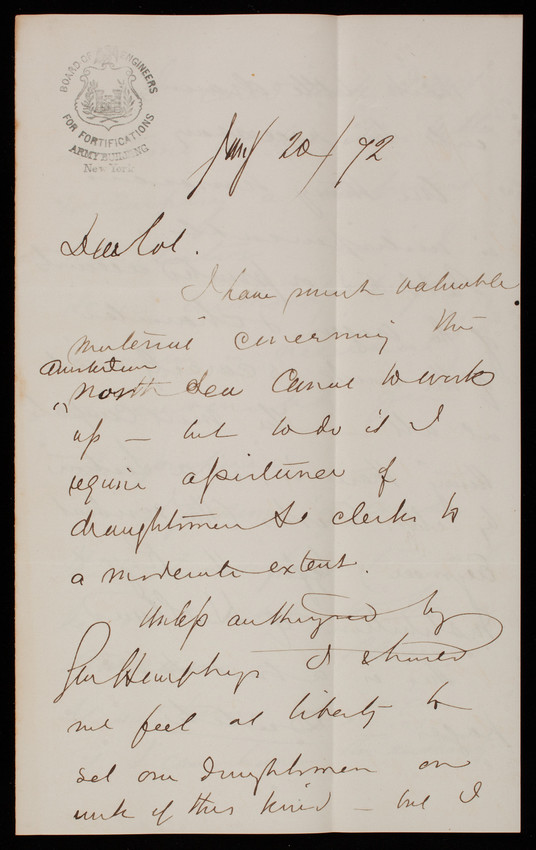 BOARD OF ENGINEERS
FOR FORTIFICATIONS
ARMY BUILDING
New York
Jany 20/72
Dear Col.
I have much valuable
material concerning the
Amsterdam
North Sea Canal to work
up — but to do it I
require assistance of
draughtsmen & clerks to
a moderate extent.
Unless authorized by
Gen Humphreys I should
not feel at liberty to
set our draughtsmen on
work of this kind — but I